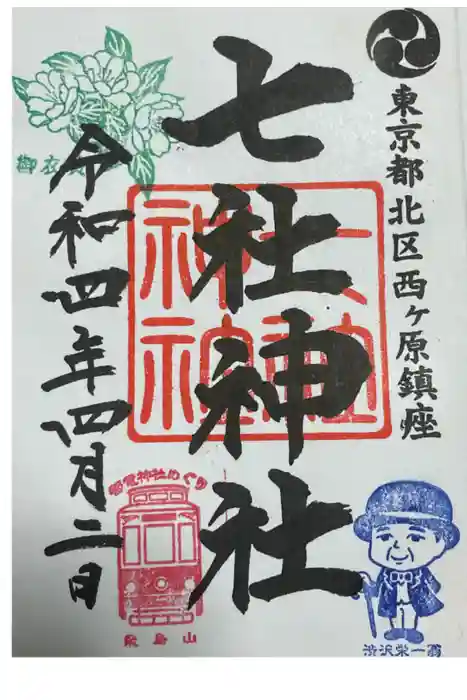 東京都北区西ヶ原鎮座
七社神社
七社神社
令和四年四月二日
御衣
神社めぐり
飛鳥山
渋沢栄一翁